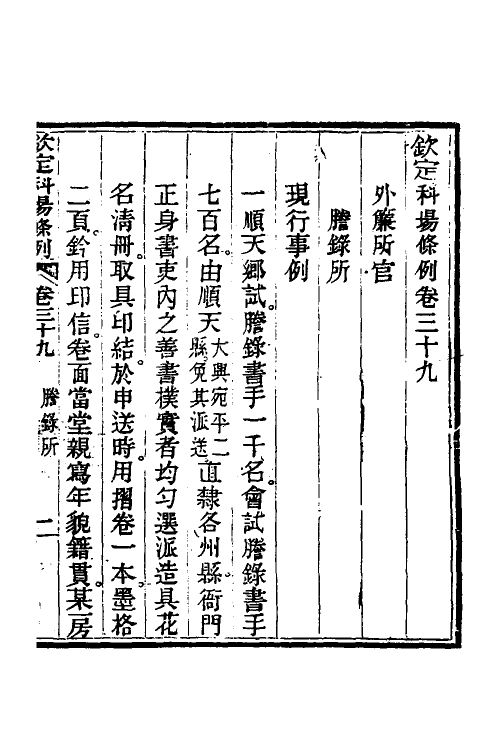 欽定科場條例卷三十九
外簾所官
謄錄所
現行事例
一順天鄉試謄錄書手一千名會試謄錄書手
七百名由順天大興宛平二縣免其派送直隸各州縣衙門
正身書吏內之善書樸實者均勻選派造具花
名清冊取具印結於申送時用摺卷一本墨格
二頁鈐用印信卷面當堂親寫年貌籍貫某房
欽定科場條例 卷三十九 謄錄所 二